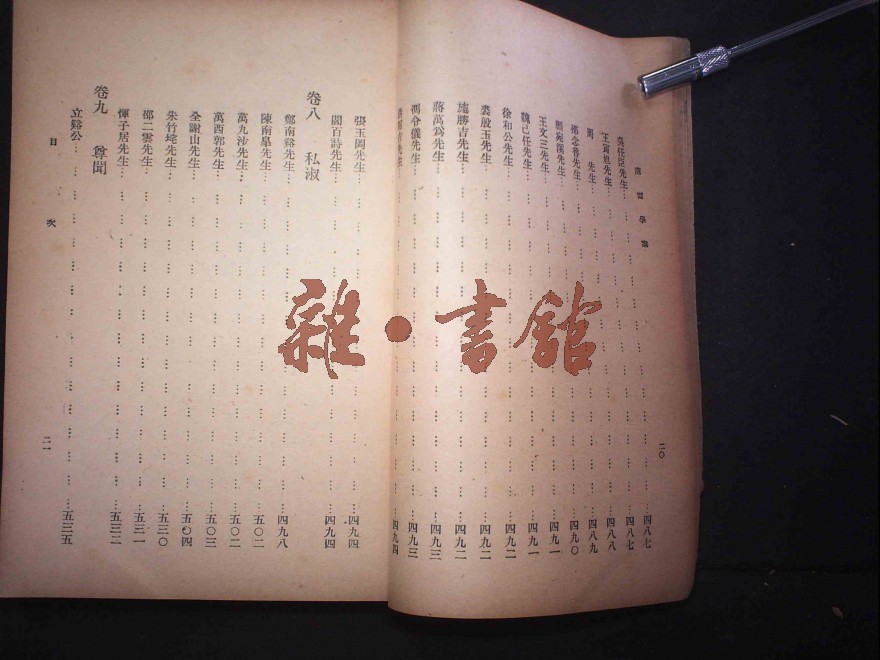 南雷學案
吳任臣先生…四八七
王甯旭先生…四八七
周　先生…四八八
鄭念魯先生…四八九
顧宛溪先生…四九〇
王文三先生…四九一
魏己任先生…四九一
徐和公先生…四九二
裘殷玉先生…四九二
施勝吉先生…四九二
蔣萬爲先生…四九三
馮令儀先生…四九三
先生…四九四
二〇
張玉岡先生…四九四
閻百詩先生…四九四
卷八　私淑
鄭南谿先生…四九八
陳南皐先生…五〇二
萬九沙先生…五〇二
萬西郭先生…五〇三
全謝山先生…五〇四
朱竹垞先生…五三〇
邵二雲先生…五三一
惲子居先生…五三二
卷九　尊聞
立谿公…五三五
目次
二一
雜·書館